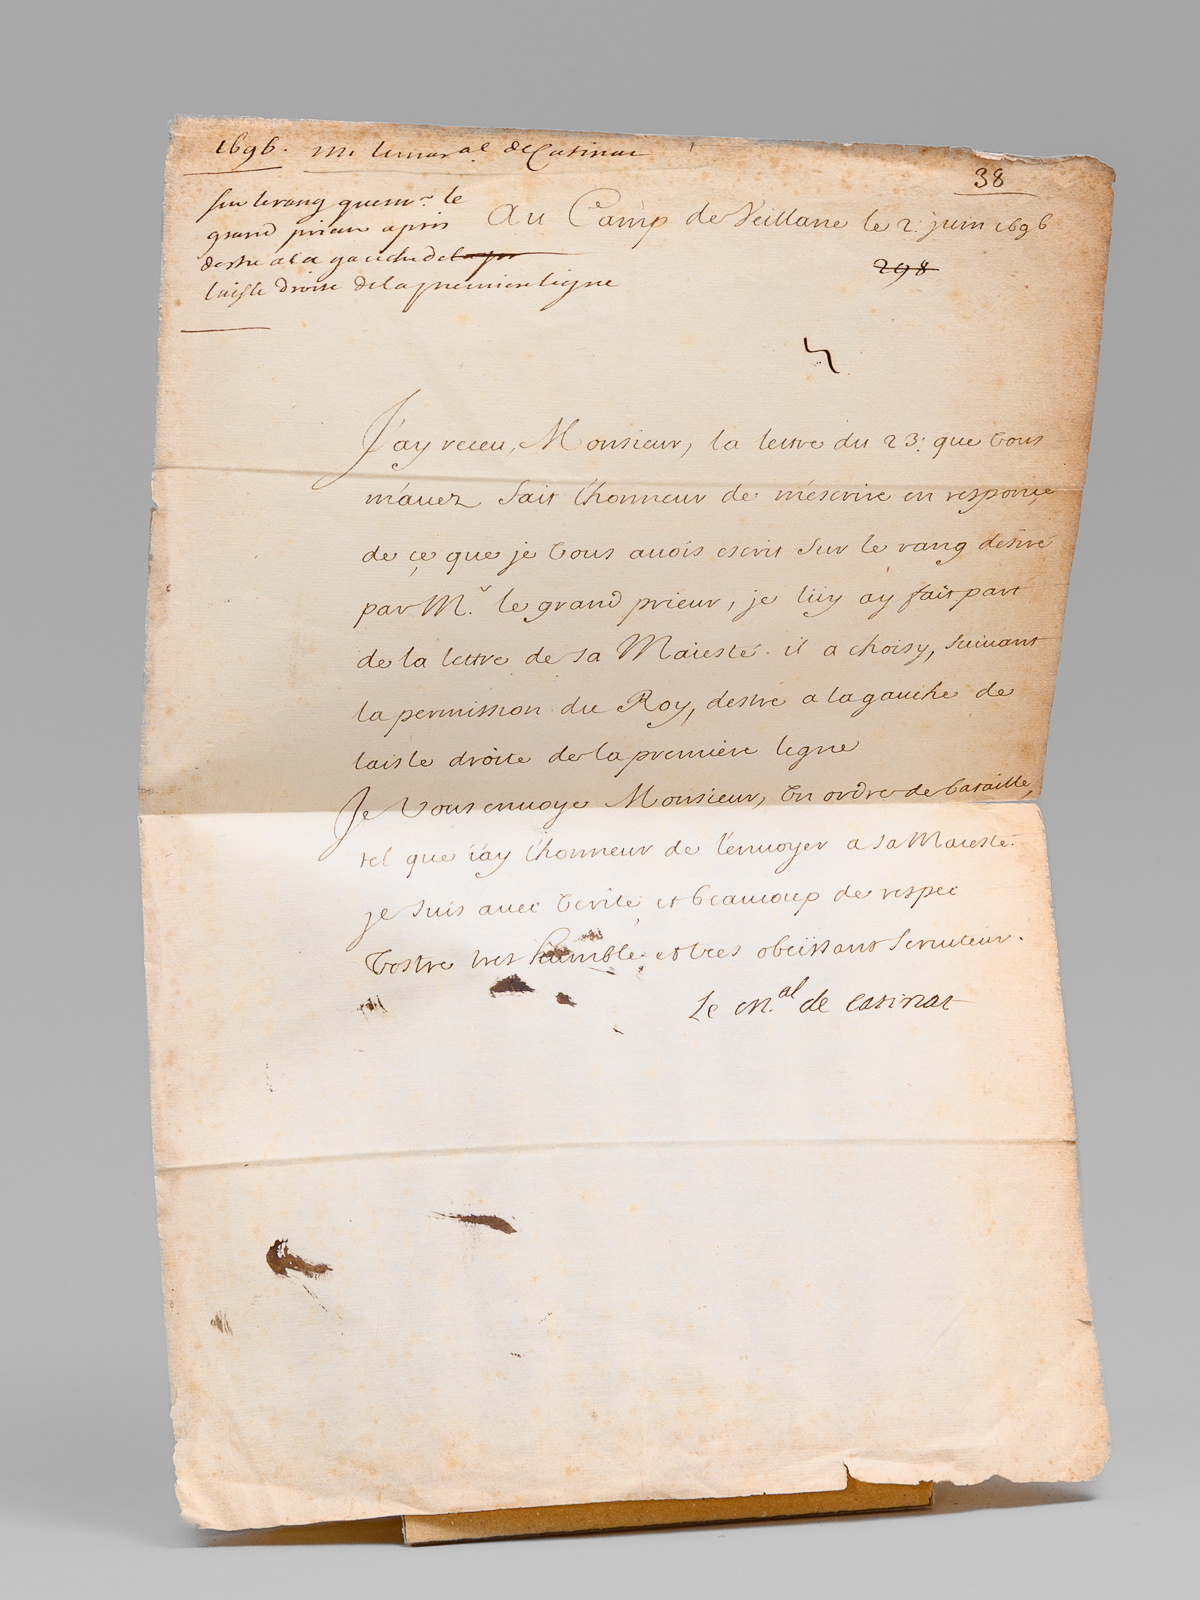 1696. M. le mar.al de Catinat
38
sur le rang que mr. le
grand prieur a pris
d'estre a la gauche de la pr
laisle droite de la premiere ligne
Au Camp de Veillane le 2. juin 1696
298
J'ay receu, Monsieur, la lettre du 23: que vous
m'auez fait l'honneur de m'escrire en responçe
de ce que je vous auois escrit sur le rang desiré
par M.r le grand prieur, je luy ay fait part
de la lettre de sa Maiesté. il a choisy, suivant
la permission du Roy, destre a la gauche de
laisle droite de la premiere ligne
Je vous enuoye Monsieur, vn ordre de bataille,
tel que i'ay l'honneur de l'enuoyer a sa Maiesté.
je suis auec verité et beaucoup de respec
Vostre tres humble et tres obeïssant seruiteur.
Le M.al de Catinat